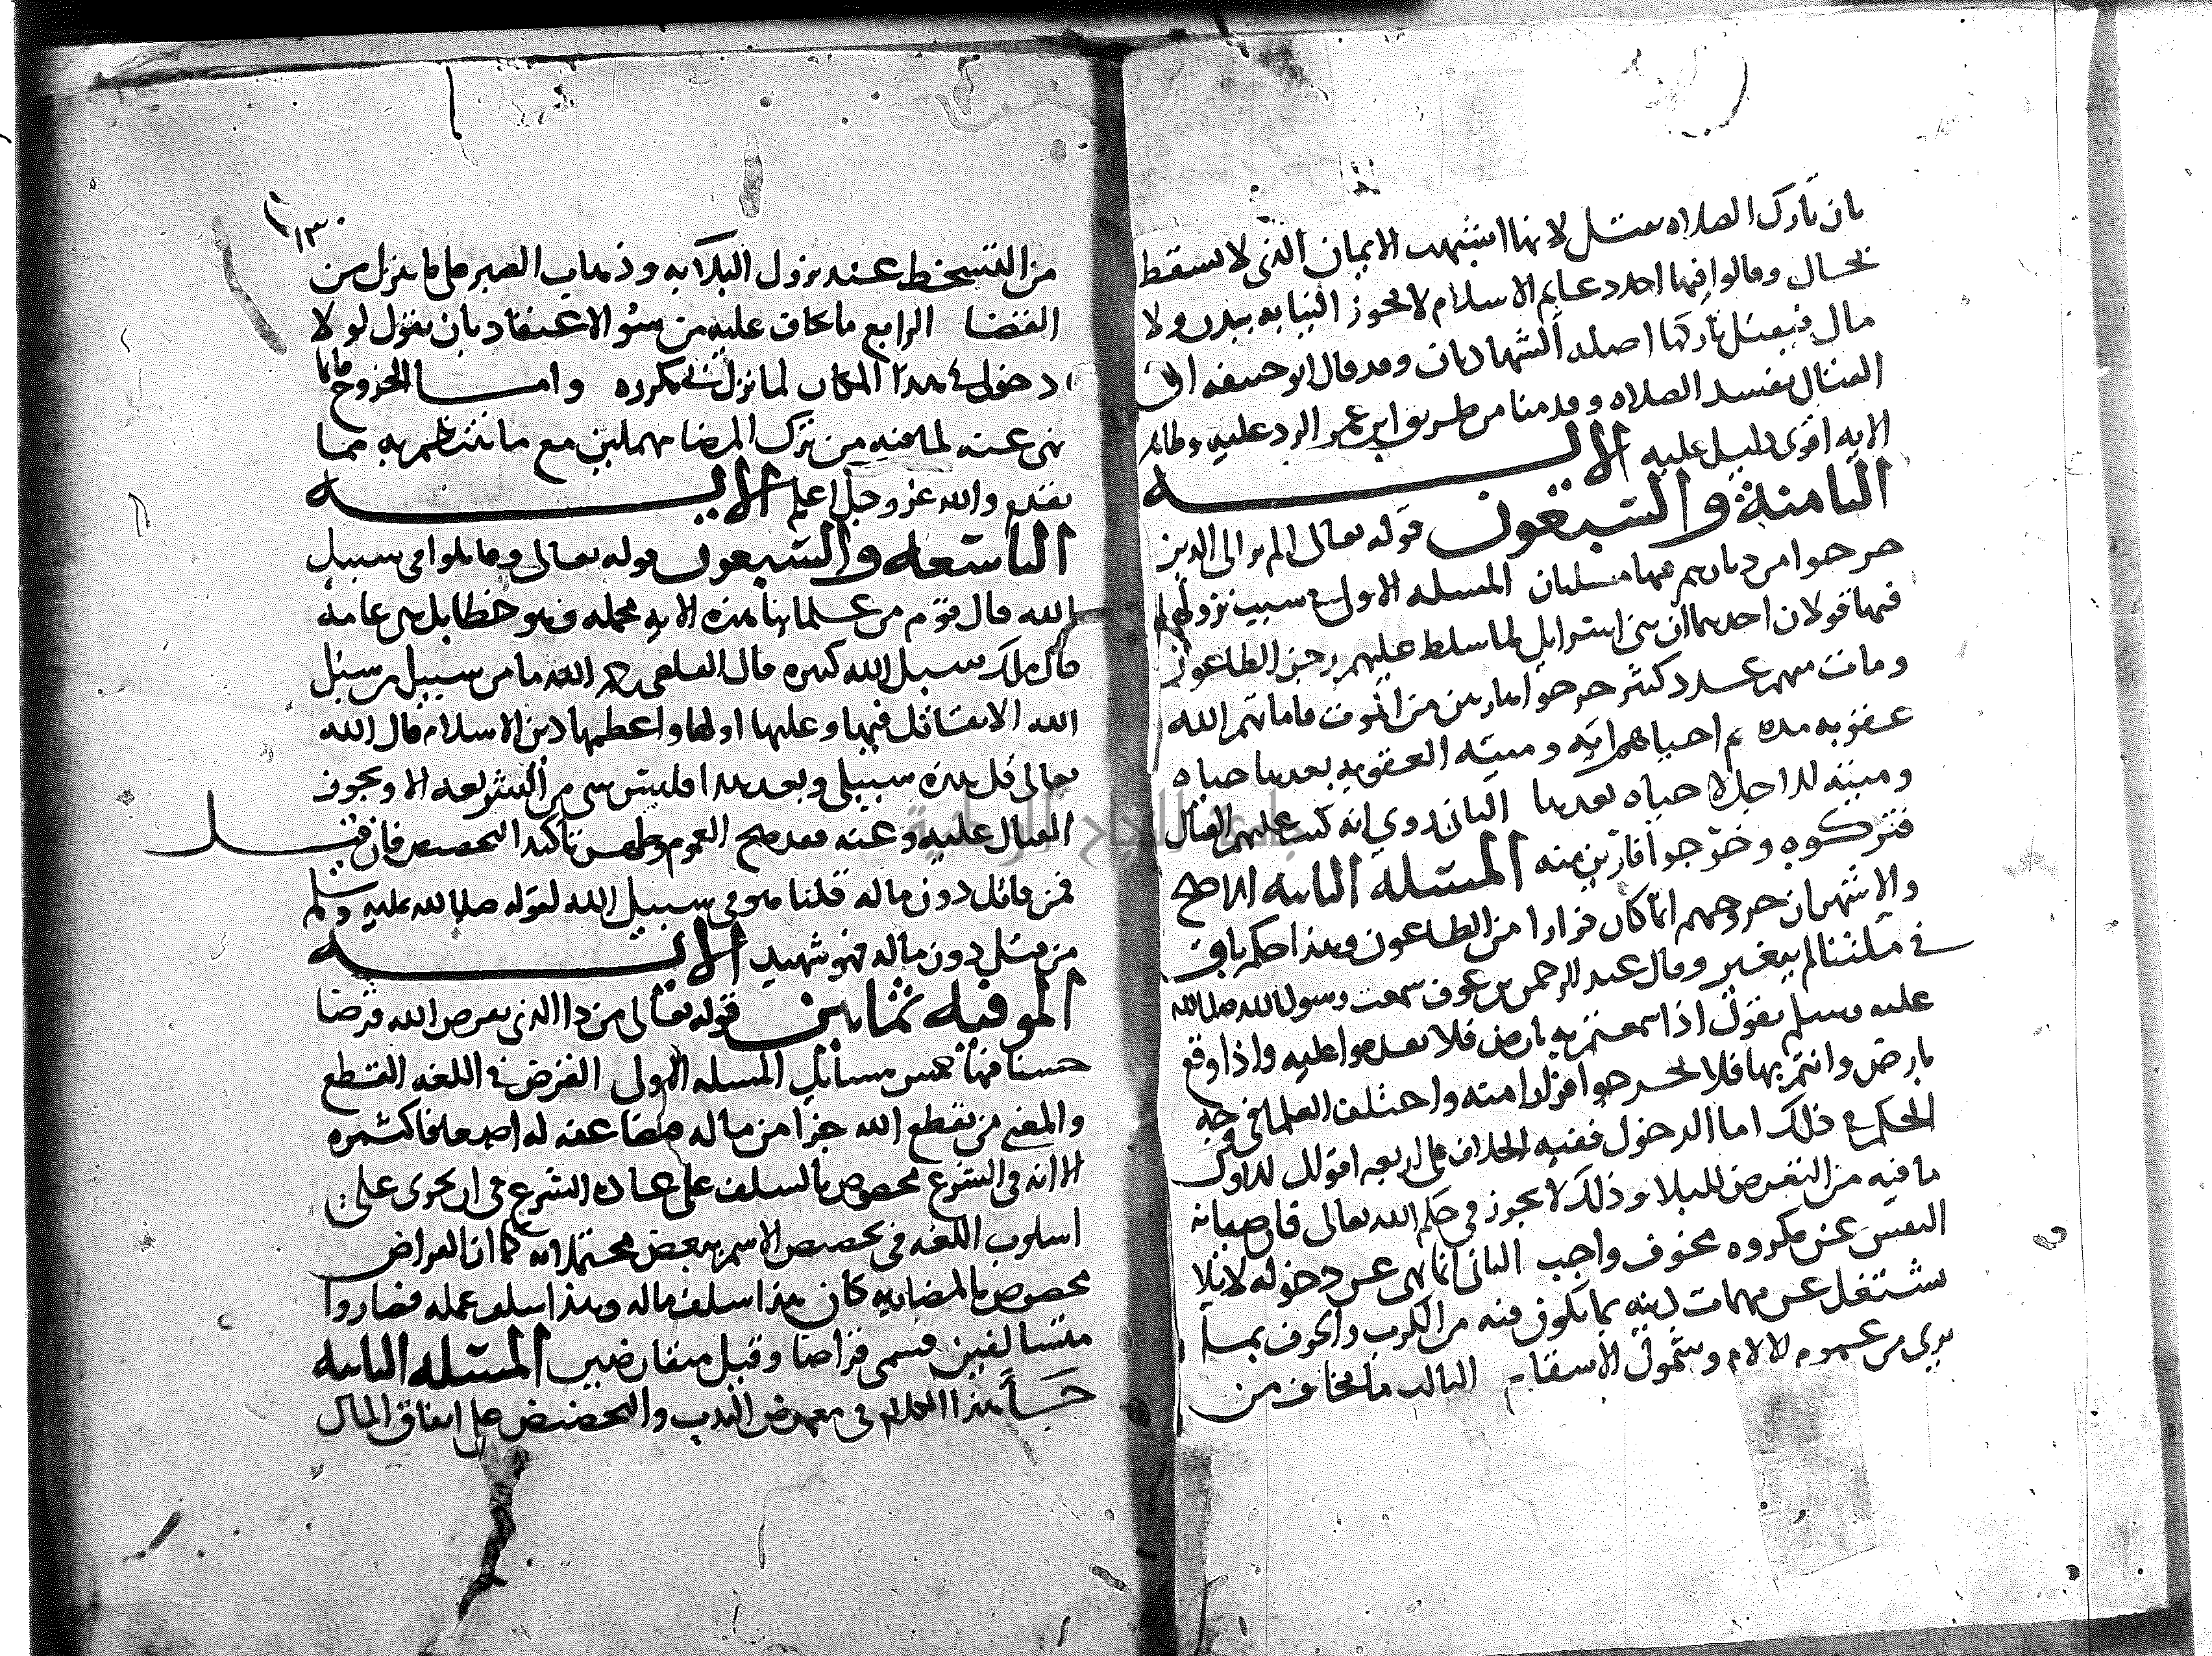 بان تارك الصلاه يقتل لانها اشبهت الايمان الذى لا يسقط
بحال وقالوا فيها احد دعايم الاسلام لا تجوز النيابه ببدن ولا
مال فيقتل تاركها اصله الشهادتان وقد قال ابو حنيفه ان
القتال يفسد الصلاه وقدمنا من طريق ابن عمر الرد عليه وظاهر
الايه اقوى دليل عليه الايـــــه
الثامنة والسبعون قوله تعالى الم تر الى الذين
خرجوا من ديارهم فيها مسلتان المسله الاولى فى سبب نزولها
فيها قولان احدهما ان بنى اسرايل لما سلط عليهم رجز الطاعون
ومات منهم عدد كثير خرجوا هاربين من الموت فاماتهم الله
عقوبه مده ثم احياهم ايه وميتة العقوبه بعدها حياه
وميتة الاجل لا حياه بعدها الثانى روي انه كتب عليهم القتال
فتركوه وخرجوا فارين منه المسله الثانيه الاصح
والاشهر ان خروجهم انما كان فرارا من الطاعون وهذا حكم باق
فى ملتنا لم يتغير وقال عبد الرحمن بن عوف سمعت رسول الله صلى الله
عليه وسلم يقول اذا سمعتم به بارض فلا تقدموا عليه واذا وقع
بارض وانتم بها فلا تخرجوا فرارا منه واختلف العلما فى وجه
الحكم فى ذلك اما الدخول ففيه الخلاف على اربعه اقوال الاول
ما فيه من التعرض للبلا وذلك لا يجوز في حكم الله تعالى فان صيانة
النفس عن مكروه مخوف واجب الثانى انما نهى عن دخوله لايلا
يشتغل عن مهمات دينه بما يكون فيه من الكرب والخوف بما
يرى من عموم الالام وشمول الاسقام الثالث ما يخاف من
١٣٠
من التسخط عند نزول البلا به وذهاب الصبر على ما ينزل من
القضا الرابع ما يخاف عليه من سؤ الاعتقاد بان يقول لولا
دخولى فى هذا المكان لما نزل بى مكروه وامـــا الخروج فانما
نهى عنه لما فيه من ترك المرضا مهملين مع ما ينتظم به مما
تقدم والله عز وجل اعلم الايـــــه
التاسعه والسبعون قوله تعالى وقاتلوا فى سبيل
الله قال قوم من علماينا هذه الايه مجمله وهو خطا بل هى عامه
قال ملك سبل الله كثيره قال القاضى رحمه الله ما من سبيل من سبل
الله الا يقاتل فيها وعليها اولها واعظمها دين الاسلام قال الله
تعالى قل هذه سبيلى وبعد هذا فليس شى من الشريعه الا ويجوز
القتال عليه وعنه فقد صح العموم وظهر تاكيد التخصيص فان قيـــل
فمن قاتل دون ماله قلنا هو فى سبيل الله لقوله صلى الله عليه وسلم
من قتل دون ماله فهو شهيد الايـــــه
الموفيه ثمانين قوله تعالى من ذا الذى يقرض الله قرضا
حسنا فيها خمس مسايل المسله الاولى القرض فى اللغه القطع
والمعنى من يقطع الله جزا من ماله فيضاعفه له اضعافا كثيره
الا انه فى الشرع مخصوص بالسلف على عاده الشرع فى ان يجرى على
اسلوب اللغه فى تخصيص الاسم ببعض محتملاته كما ان القراض
مخصوص بالمضاربه كان هذا اسلف ماله وهذا اسلف عمله فصاروا
متسالفين فسمى قراضا وقيل متقارضين المسله الثانيه
جــا هذا الكلام فى معرض الندب والتحضيض على انفاق المال